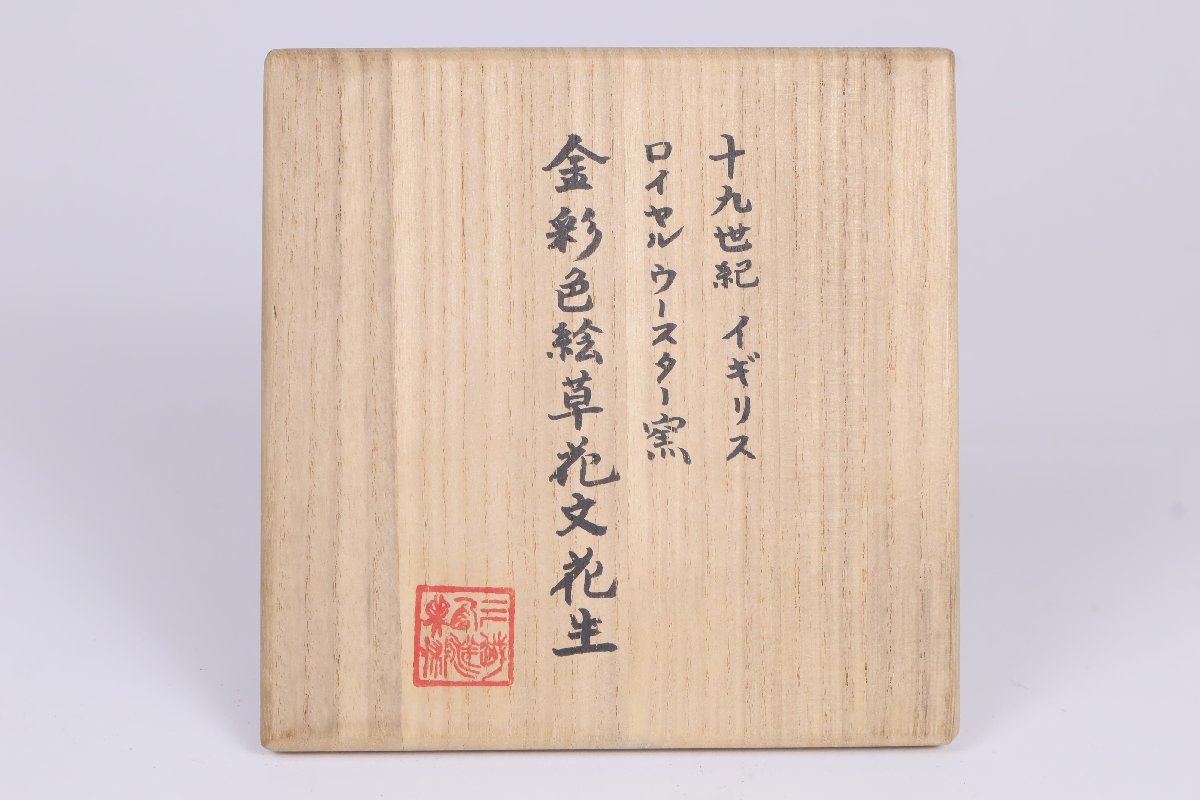 十九世紀 イギリス
ロイヤル ウースター窯
金彩色絵草花文花生